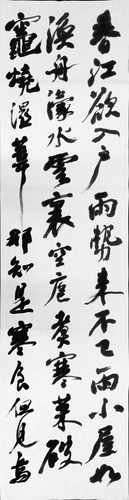 春江欲入戶雨勢來不已雨小屋如
漁舟濛水雲裏空庖煮寒菜破
竈燒濕葦那知是寒食但見烏